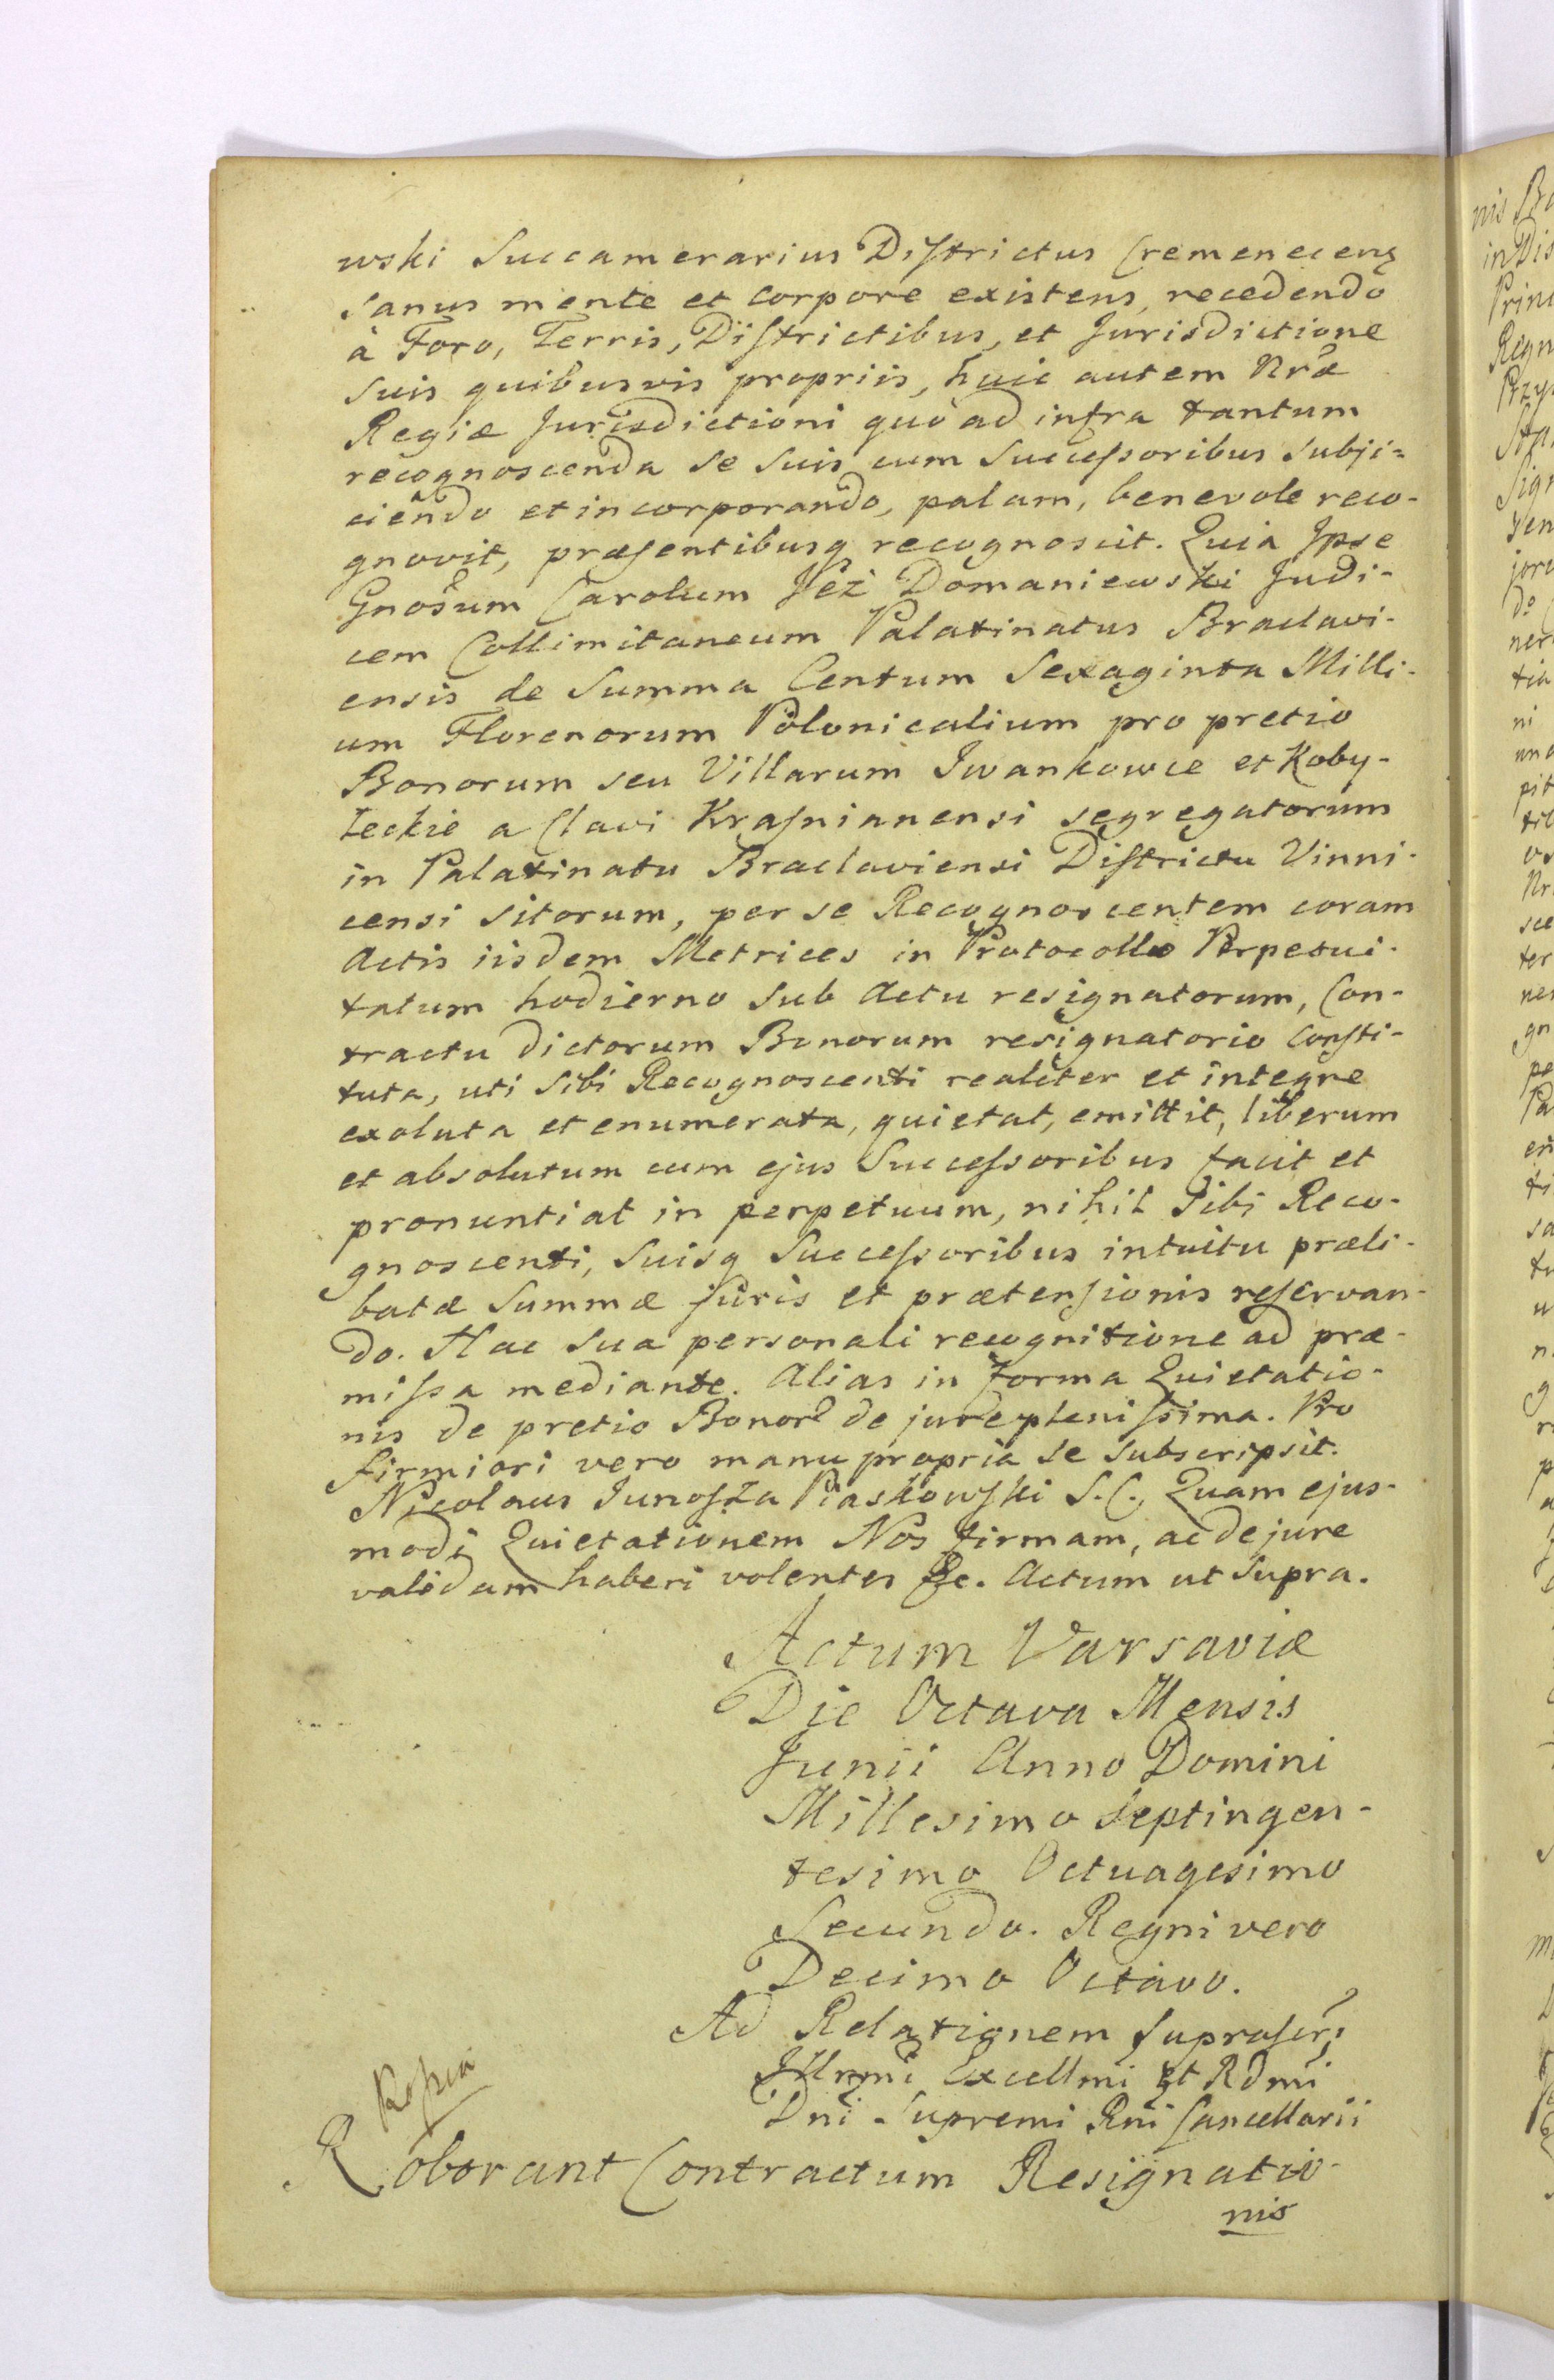 wski Succamerarius Districtus Cremenecens
sanus mente et corpore existens, recedendo
à Foro, Terris, Districtibus, et Jurisdictione
suis quibusvis propriis, huic autem Nræ
Regiæ Jurisdictioni quò ad infra tantum
recognoscenda se suis cum Successoribus subji=
ciendo et incorporando, palam, benevole reco-
gnovit, præsentibusq recognoscit. Quia Ipse
Gnosum Carolum Jéż Domaniewski Judi-
cem Collimitaneum Palatinatus Braclavi-
ensis de Summa Centum Sexaginta Milli-
um Florenorum Polonicalium pro pretio
Bonorum seu Villarum Iwankowce et Koby-
leckie a Clavi Krasnianensi segregatorum
in Palatinatu Braclaviensi Districtu Vinni-
censi sitorum, per se Recognoscentem coram
Actis iisdem Metrices in Protocollo Perpetui-
tatum hodierno sub Actu resignatorum, Con-
tractu dictorum Bonorum resignatorio consti-
tuta, uti sibi Recognoscenti realiter et integre
exoluta et enumerata, quietat, emittit, liberum
et absolutum cum ejus Successoribus facit et
pronuntiat in perpetuum, nihil sibi Reco-
gnoscenti, suisq Successoribus intuitu præli-
batæ Summæ juris et prætensionis reservan-
do. Hac sua personali recognitione ad præ-
missa mediante. Alias in forma Quietatio-
nis de pretio Bonor de jure plenissima. Pro
firmiori vero manu propria se subscripsit.
Nicolaus Junosza Piaskowski S.C., Quam ejus-
modi Quietationem Nos firmam, ac de jure
validam haberi volentes &c. Actum ut supra.
Actum Varsaviæ
Die Octava Mensis
Junii Anno Domini
Millesimo Septingen-
tesimo Octuagesimo
Secundo. Regni vero
Decimo Octavo.
Ad Relationem suprascri
Illrmi Excellmi et Rdmi
Dni Supremi Rni Cancellarii
Kopia
Roborant Contractum Resignatio-
nis